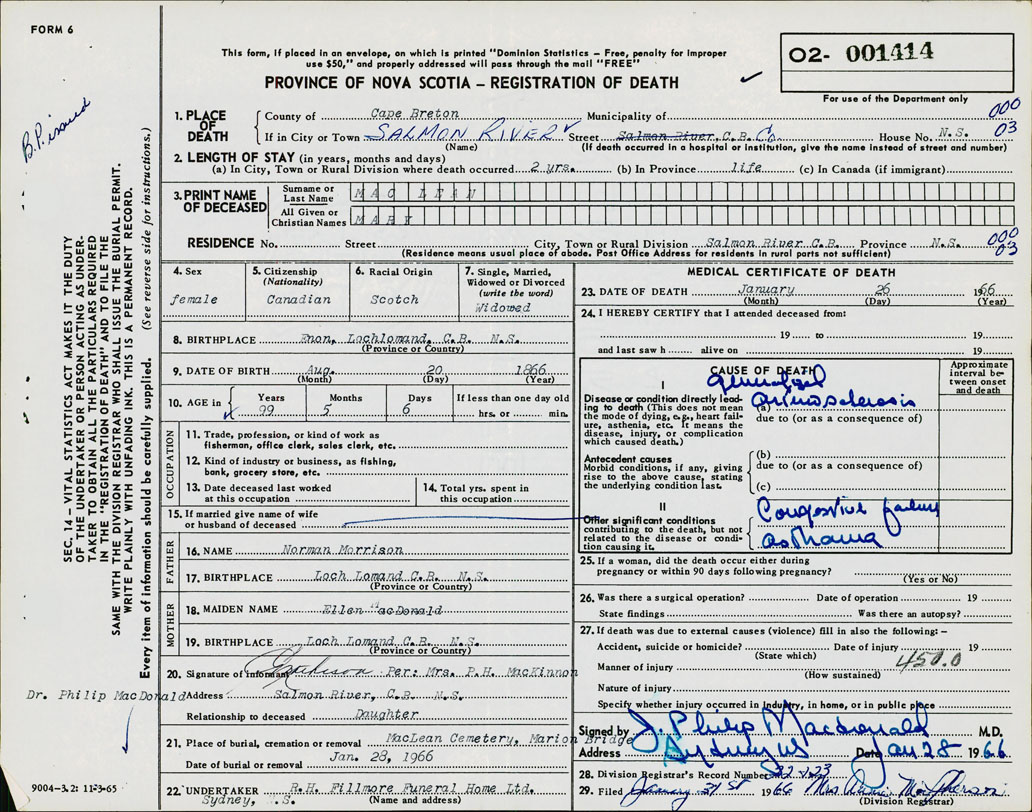 FORM 6
This form, if placed in an envelope, on which is printed "Dominion Statistics – Free, penalty for improper
use $50," and properly addressed will pass through the mail "FREE"
PROVINCE OF NOVA SCOTIA – REGISTRATION OF DEATH
O2- 001414
For use of the Department only
B.P. issued
SEC. 14 – VITAL STATISTICS ACT MAKES IT THE DUTY
OF THE UNDERTAKER OR PERSON ACTING AS UNDER-
TAKER TO OBTAIN ALL THE PARTICULARS REQUIRED
IN THE "REGISTRATION OF DEATH" AND TO FILE THE
SAME WITH THE DIVISION REGISTRAR WHO SHALL ISSUE THE BURIAL PERMIT.
WRITE PLAINLY WITH UNFADING INK. THIS IS A PERMANENT RECORD.
Every item of information should be carefully supplied. (See reverse side for instructions.)
1. PLACE OF DEATH County of Cape Breton Municipality of 000
If in City or Town SALMON RIVER Street Salmon River, C.B. Co. House No. N.S. 03
(Name) (If death occurred in a hospital or institution, give the name instead of street and number)
2. LENGTH OF STAY (in years, months and days)
(a) In City, Town or Rural Division where death occurred 2 yrs. (b) In Province life (c) In Canada (if immigrant)
3. PRINT NAME OF DECEASED Surname or Last Name MAC LEAN
All Given or Christian Names MARY
RESIDENCE No. Street City, Town or Rural Division Salmon River C.B. Province N.S. 000 03
(Residence means usual place of abode. Post Office Address for residents in rural parts not sufficient)
4. Sex 5. Citizenship (Nationality) 6. Racial Origin 7. Single, Married, Widowed or Divorced (write the word)
female Canadian Scotch Widowed
8. BIRTHPLACE Enon, Lochlomand, C.B. N.S.
(Province or Country)
9. DATE OF BIRTH Aug. 20 1866
(Month) (Day) (Year)
10. AGE in Years Months Days If less than one day old
99 5 6 hrs. or min.
OCCUPATION
11. Trade, profession, or kind of work as
fisherman, office clerk, sales clerk, etc.
12. Kind of industry or business, as fishing,
bank, grocery store, etc.
13. Date deceased last worked
at this occupation
14. Total yrs. spent in
this occupation
15. If married give name of wife
or husband of deceased
FATHER
16. NAME Norman Morrison
17. BIRTHPLACE Loch Lomand C.B. N.S.
(Province or Country)
MOTHER
18. MAIDEN NAME Ellen MacDonald
19. BIRTHPLACE Loch Lomand C.B. N.S.
(Province or Country)
20. Signature of informant Per: Mrs. P.H. MacKinnon
Dr. Philip MacDonald
Address Salmon River, C.B. N.S.
Relationship to deceased Daughter
21. Place of burial, cremation or removal MacLean Cemetery, Marion Bridge
Date of burial or removal Jan. 28, 1966
22. UNDERTAKER R.H. Fillmore Funeral Home Ltd.
Sydney, N.S. (Name and address)
9004-3.2: 11-3-65
MEDICAL CERTIFICATE OF DEATH
23. DATE OF DEATH January 26 1966
(Month) (Day) (Year)
24. I HEREBY CERTIFY that I attended deceased from:
19 to 19
and last saw h alive on 19
CAUSE OF DEATH
Approximate interval between onset and death
I
Generalized
Disease or condition directly lead-
ing to death (This does not mean
the mode of dying, e.g., heart fail-
ure, asthenia, etc. It means the
disease, injury, or complication
which caused death.)
(a) arteriosclerosis
due to (or as a consequence of)
Antecedent causes
Morbid conditions, if any, giving
rise to the above cause, stating
the underlying condition last.
(b)
due to (or as a consequence of)
(c)
II
Other significant conditions
contributing to the death, but not
related to the disease or condi-
tion causing it.
Congestive failure
asthma
25. If a woman, did the death occur either during
pregnancy or within 90 days following pregnancy?
(Yes or No)
26. Was there a surgical operation? Date of operation 19
State findings Was there an autopsy?
27. If death was due to external causes (violence) fill in also the following: –
Accident, suicide or homicide? Date of injury 19
(State which)
Manner of injury 450.0
(How sustained)
Nature of injury
Specify whether injury occurred in Industry, in home, or in public place
Signed by J. Philip Macdonald M.D.
Address Sydney NS Date Jan 28 1966
28. Division Registrar's Record Number
29. Filed January 31st 1966 Mrs
(Division Registrar)